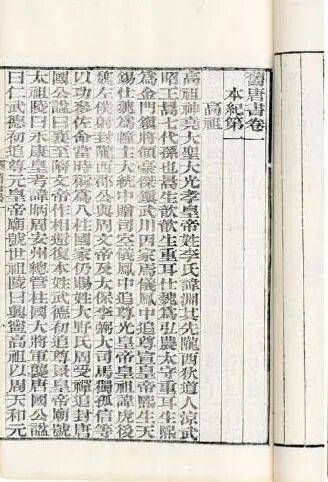 舊唐書卷一
本紀第一
高祖
高祖神堯大聖大光孝皇帝姓李氏諱淵其先隴西狄道人涼武
昭王暠七代孫也暠生歆歆生重耳仕魏為弘農太守重耳生熙
為金門鎮將領豪傑鎮武川因家焉儀鳳中追尊宣皇帝熙生天
錫仕魏為幢主大統中贈司空儀鳳中追尊光皇帝皇祖諱虎後
魏左僕射封隴西郡公與周文帝及太保李弼大司馬獨孤信等
以功參佐命當時稱為八柱國家仍賜姓大野氏周受禪追封唐
國公諡曰襄至隋文帝作相還復本姓武德初追尊景皇帝廟號
太祖陵曰永康皇考諱昞周安州總管柱國大將軍襲唐國公諡
曰仁武德初追尊元皇帝廟號世祖陵曰興寧高祖以周天和元